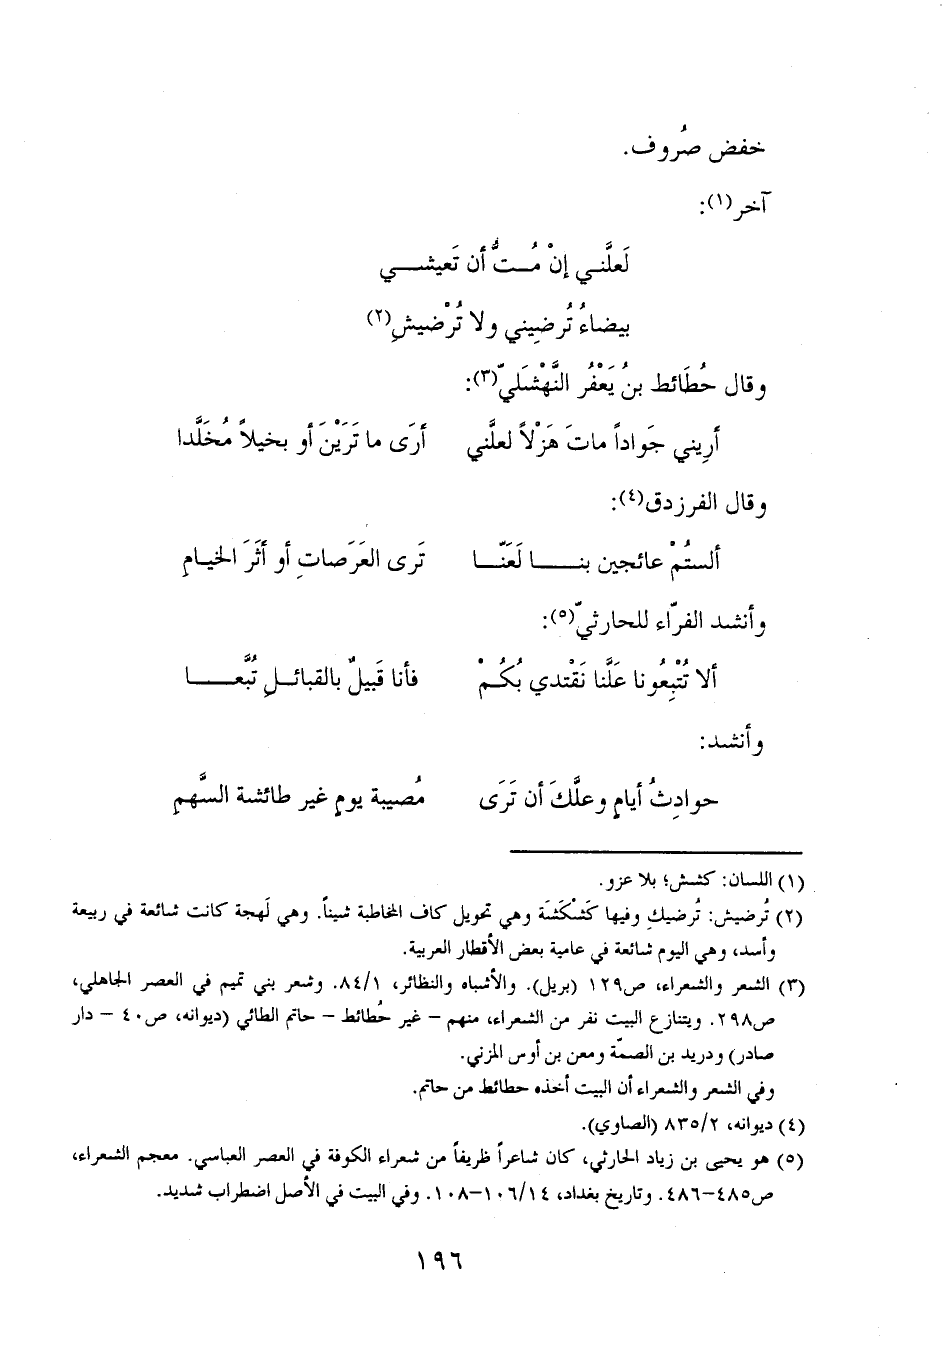 خفض صُروف.
آخر(١):
لَعلَّني إنْ مُــتُّ أن تَعيشـــي
بيضاءُ تُرضِيني ولا تُرْضيشِ(٢)
وقال حُطَائط بنُ يَعْفُر النَّهْشَليّ(٣):
أرِيني جَواداً ماتَ هَزْلاً لعلَّني أرَى ما تَرَيْنَ أو بخيلاً مُخَلَّدا
وقال الفرزدق(٤):
ألستُمْ عائجين بنـــا لَعَنّـــا تَرى العَرَصاتِ أو أثَرَ الخيامِ
وأنشد الفرّاء للحارثيّ(٥):
ألا تُتْبِعُونا عَلَّنا نَقْتدي بكُــمْ فأنا قَبيلٌ بالقبائــلِ تُبَّعـــا
وأنشد:
حوادِثُ أيامٍ وعلَّكَ أن تَرَى مُصيبة يومٍ غير طائشة السَّهمِ
(١) اللسان: كشش؛ بلا عزو.
(٢) تُرضيش: تُرضيكِ وفيها كَشْكَشَة وهي تحويل كاف المخاطبة شيناً. وهي لَهجة كانت شائعة في ربيعة
وأسد، وهي اليوم شائعة في عامية بعض الأقطار العربية.
(٣) الشعر والشعراء، ص١٢٩ (بريل). والأشباه والنظائر، ٨٤/١. وشعر بني تميم في العصر الجاهلي،
ص٢٩٨. ويتنازع البيت نفر من الشعراء، منهم – غير حُطائط – حاتم الطائي (ديوانه، ص٤٠ – دار
صادر) ودريد بن الصمّة ومعن بن أوس المزني.
وفي الشعر والشعراء أن البيت أخذه حطائط من حاتم.
(٤) ديوانه، ٨٣٥/٢ (الصاوي).
(٥) هو يحيى بن زياد الحارثي، كان شاعراً ظريفاً من شعراء الكوفة في العصر العباسي. معجم الشعراء،
ص٤٨٥–٤٨٦. وتاريخ بغداد، ١٠٦/١٤–١٠٨. وفي البيت في الأصل اضطراب شديد.
١٩٦